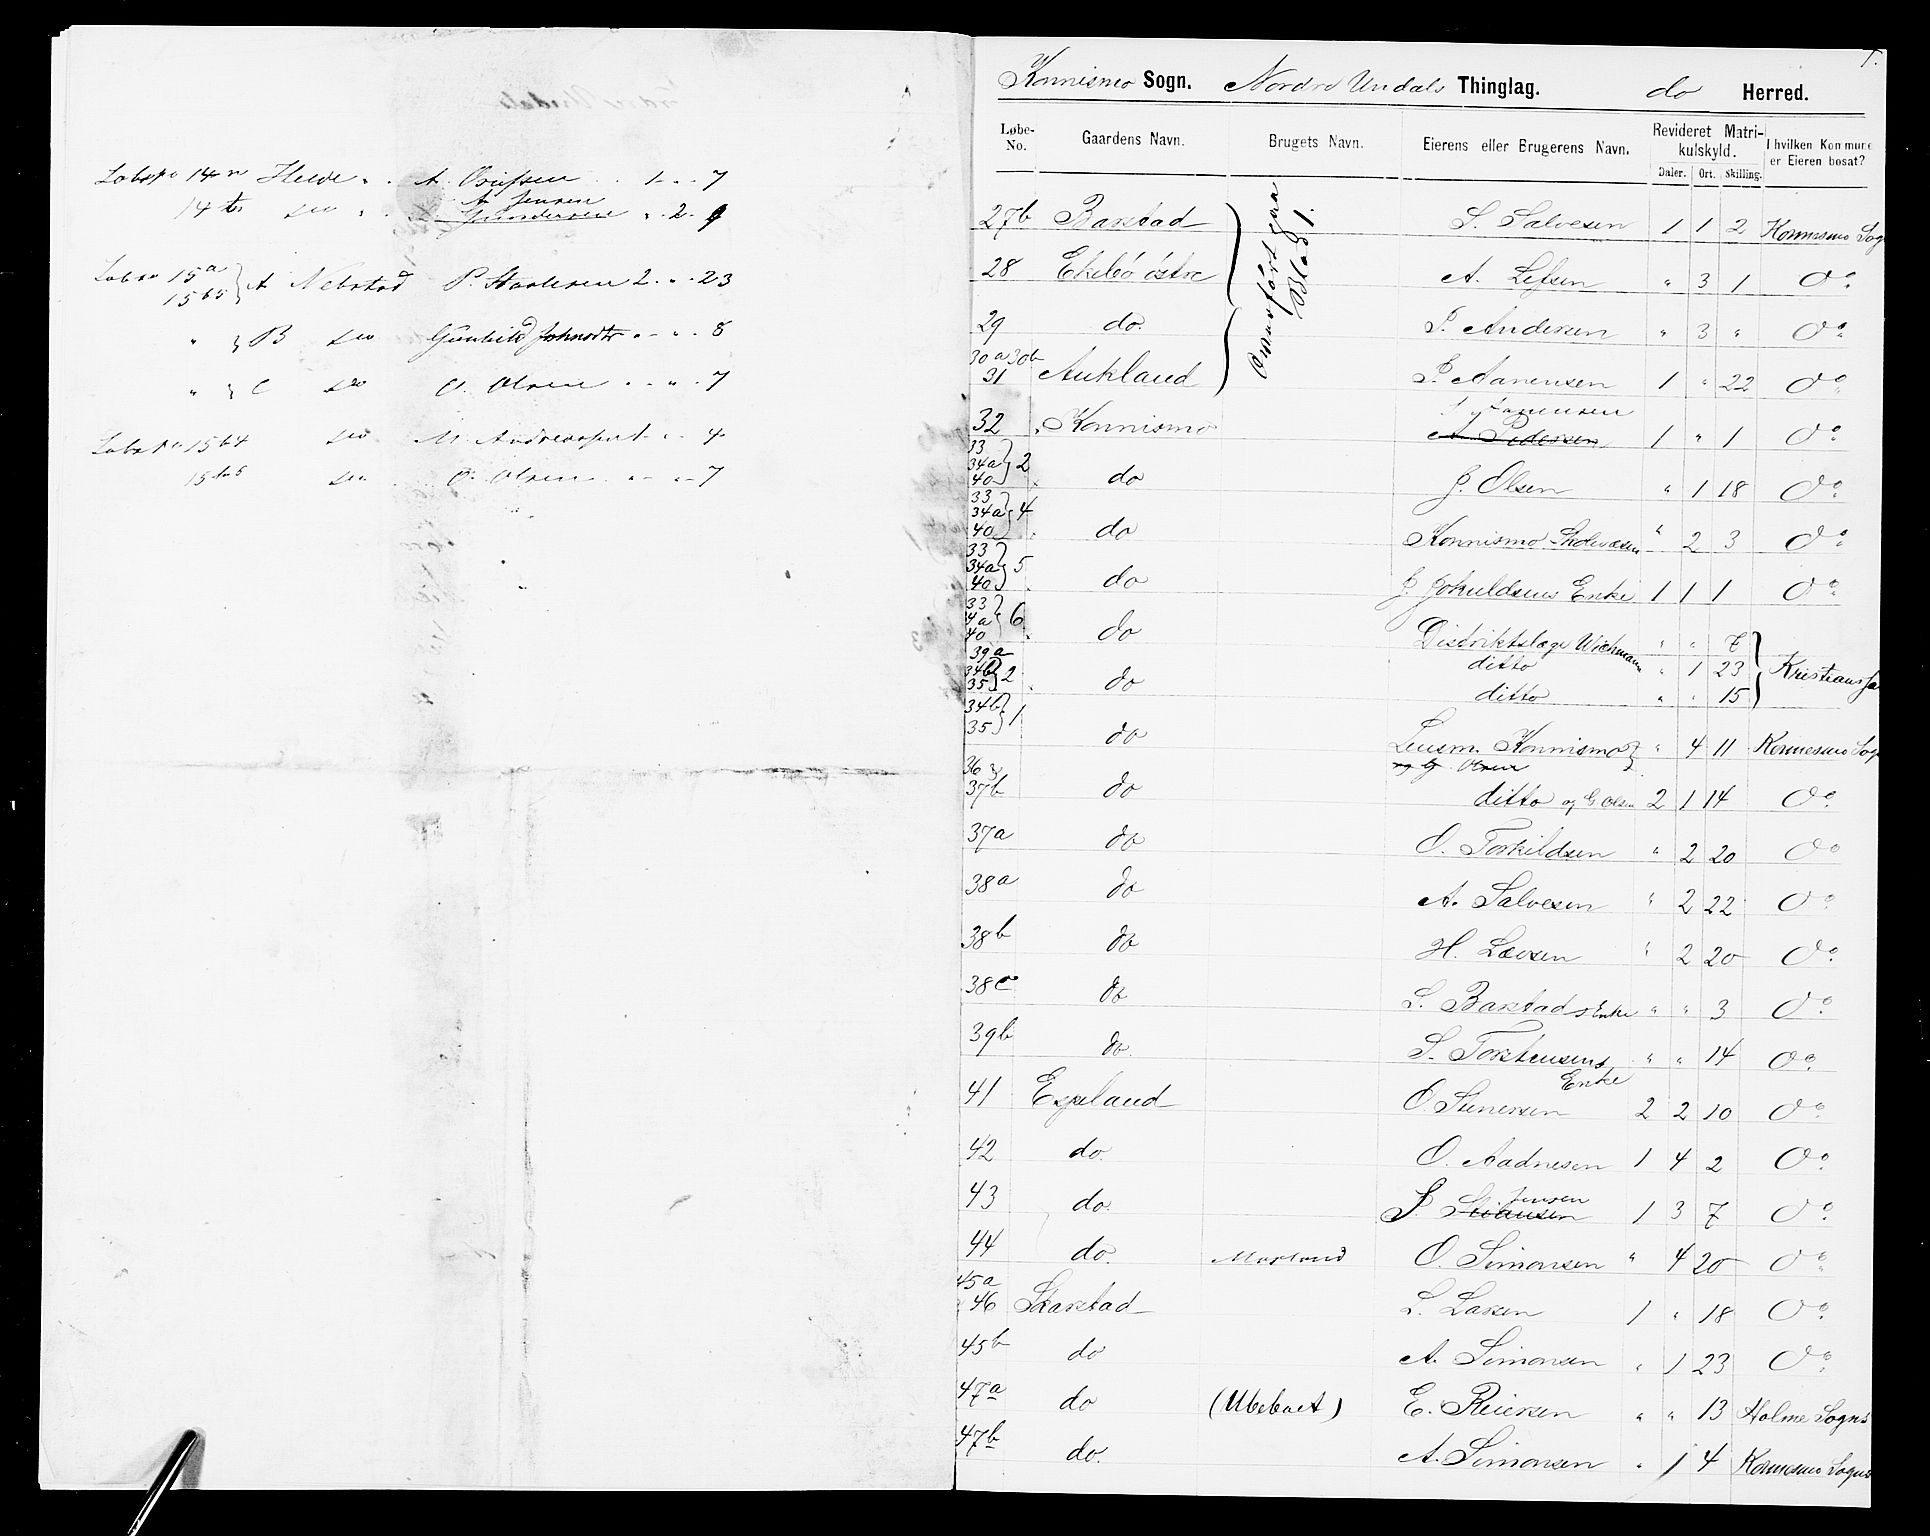 Løbeno 14 n Helde " . A. . . 1 - " - 7
14 do " . A. Jensen " . 2 . 9
Løbeno 15 a
15 b5 } A Nebstad P. 2 . " - 23
" } B do Gunhild Johnsdtr " - " . 8
" } C do O. Olsen " . " . 7
Løbeno 15 b4 do M. " . 4
15 b6 do O. Olsen " - " - 7
1.
Konnismo Sogn. Nordre Undals Thinglag. do Herred.
Løbe-No. Gaardens Navn. Brugets Navn. Eierens eller Brugerens Navn. Revideret Matrikulskyld. I hvilken Kommune er Eieren bosat?
Daler. Ort. Skilling.
Blad 1.
27b Barstad S. Salvesen 1 1 2 Konnesmo Sogn
28 Ekebø østre A. Lefsen " 3 1 Do
29 do. P. Andersen " 3 " Do
30a 30b
31 Aukland P. Aanensen 1 " 22 Do
32 Konnismo A. Pedersen 1 " 1 Do
33 34a 40 } 2 do J. Olsen " 1 18 Do
33 34a 40 } 4 do Konnismo Skolevæsen " 2 3 Do
33 34a 40 } 5 do J. Enke 1 1 1 Do
33 4a 40 } 6 do Distriktslæge Wichmann " " 7
39a ditto " 1 23 } Kristianssa
34b 35 } 2 do ditto " " 15
34b 35 } 1 do Lensm. Konnismo } " 4 11 Konnesmo Sogn
og G. Olsen
36 }
37b do ditto og G Olsen 2 1 14 Do
37a do O. Torkildsen " 2 20 Do
38a do A. Salvesen " 2 22 Do
38b do H. Lævsen " 2 20 Do
38c do S. Barstads Enke " " 3 Do
39b do. S. Torstensens " " 14 Do
Enke
41 Espeland O. Stenersen 2 2 10 Do
42 do. O. Aadnesen 1 4 2 Do
Jensen
43 do. S. 1 3 7 Do
44 do. O. Simonsen " 4 20 Do
45a
46 Skarstad L. Larsen 1 " 18 Do
45b do A. Simonsen " 1 23 Do
47a do (Ubeboet) E. Reiersen " " 13 Holme Sogns
47b do. A. Simonsen " 1 4 Konnesmo Sogns